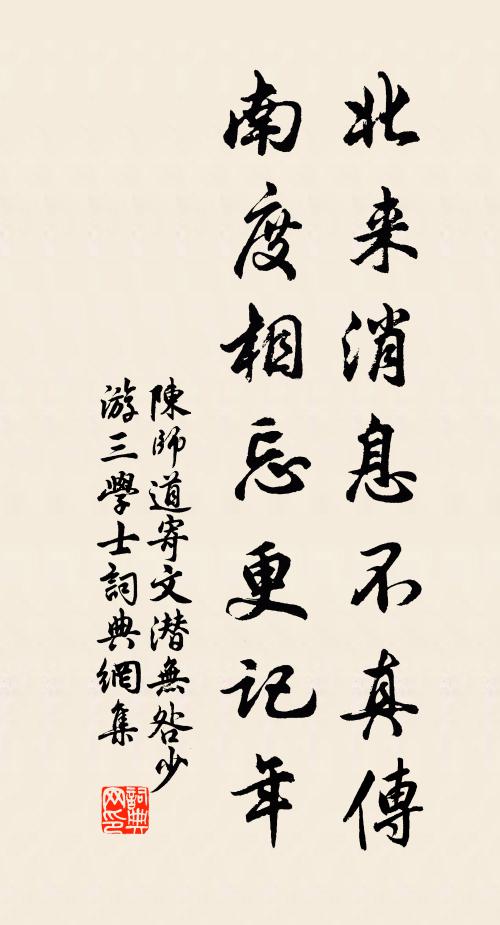 北来消息不真傳
南度相忘更記年
陳師道寄文潜無咎少
游三學士詞典網集
詞典
网印